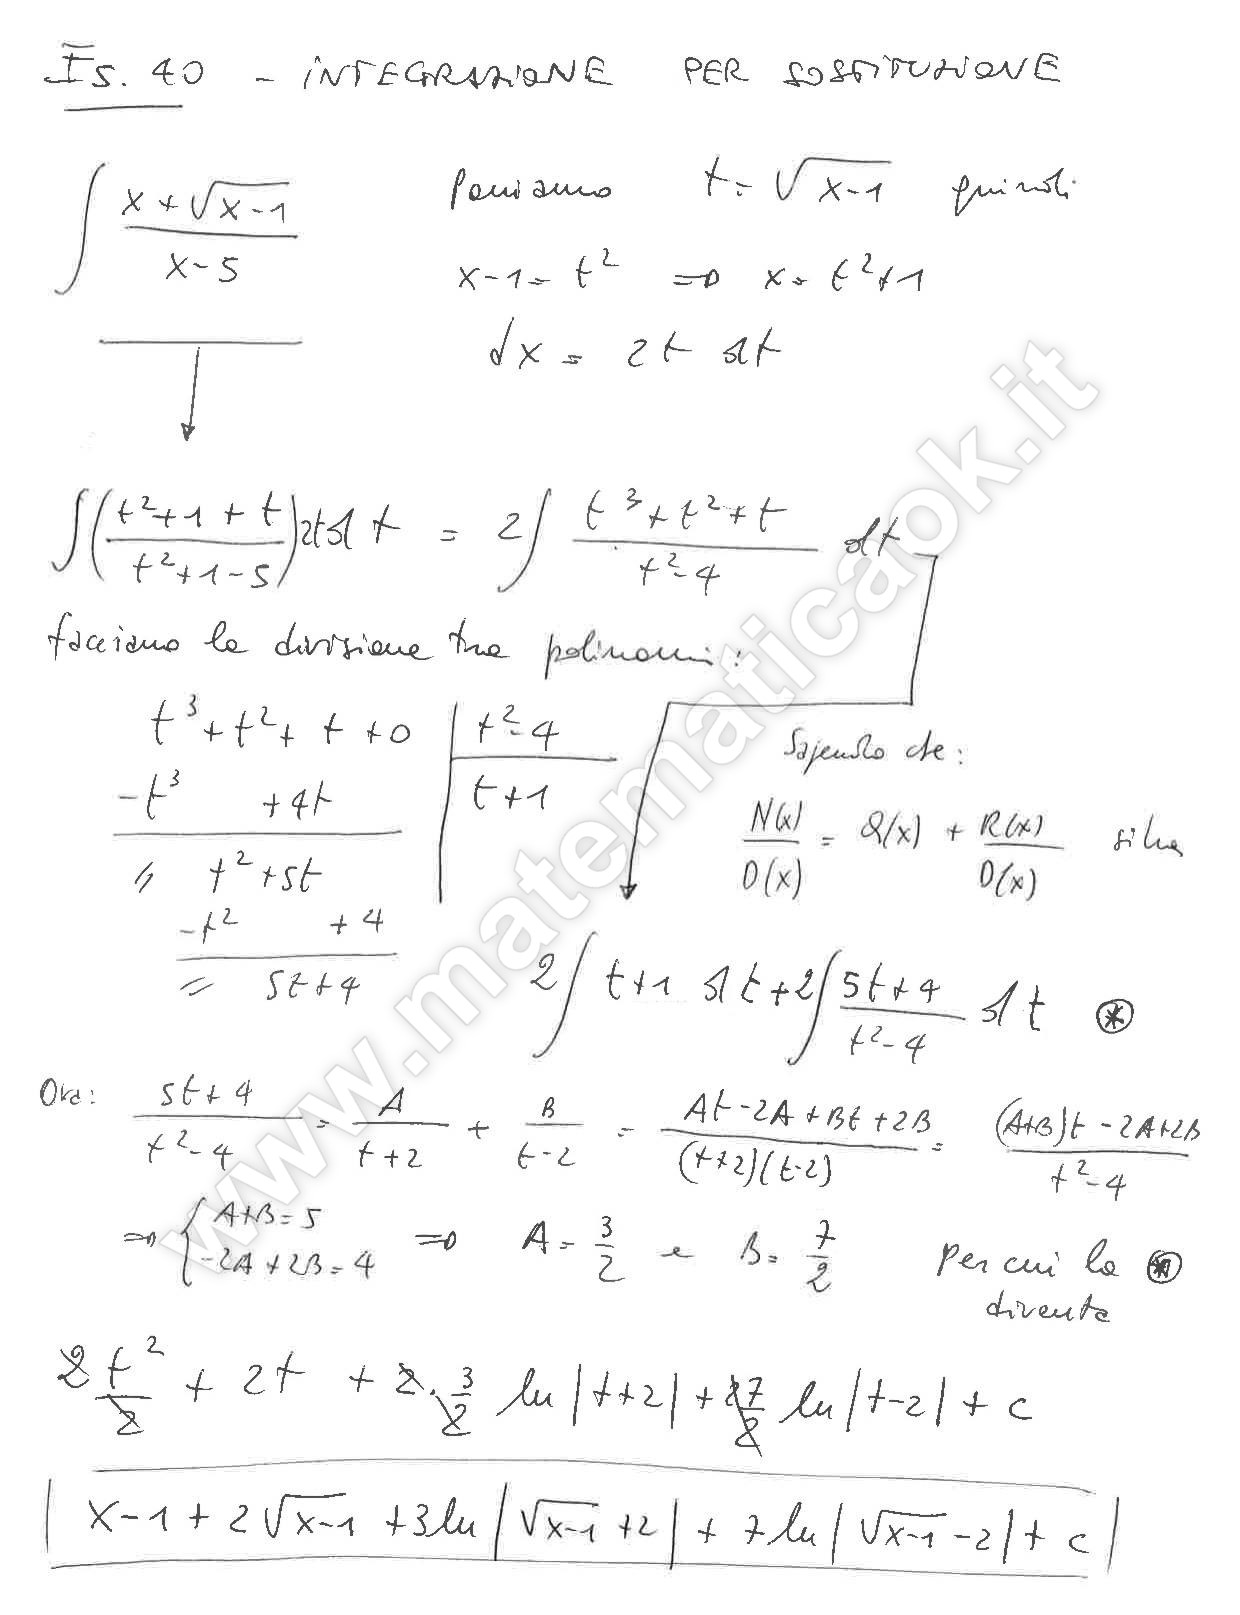 Es. 40 - INTEGRAZIONE PER SOSTITUZIONE
∫ (x+√(x-1))/(x-5) Poniamo t = √(x-1) quindi
x-1 = t² => x = t²+1
dx = 2t dt
∫((t²+1+t)/(t²+1-5))2t dt = 2∫ (t³+t²+t)/(t²-4) dt
facciamo la divisione tra polinomi:
t³+t²+t+0 | t²-4
-t³ +4t | t+1
// t²+5t
-t² +4
// 5t+4
Sapendo che:
N(x)/D(x) = Q(x) + R(x)/D(x) si ha
2∫ t+1 dt + 2∫ (5t+4)/(t²-4) dt ⊛
Ora: (5t+4)/(t²-4) = A/(t+2) + B/(t-2) = (At-2A+Bt+2B)/((t+2)(t-2)) = ((A+B)t-2A+2B)/(t²-4)
=> { A+B=5
-2A+2B=4 => A = 3/2 e B = 7/2 Per cui la ⊛
diventa
2 t²/2 + 2t + 2·3/2 ln|t+2| + 2 7/2 ln|t-2| + c
x-1+2√(x-1) +3ln|√(x-1)+2| + 7ln|√(x-1)-2| + c
www.matematicaok.it